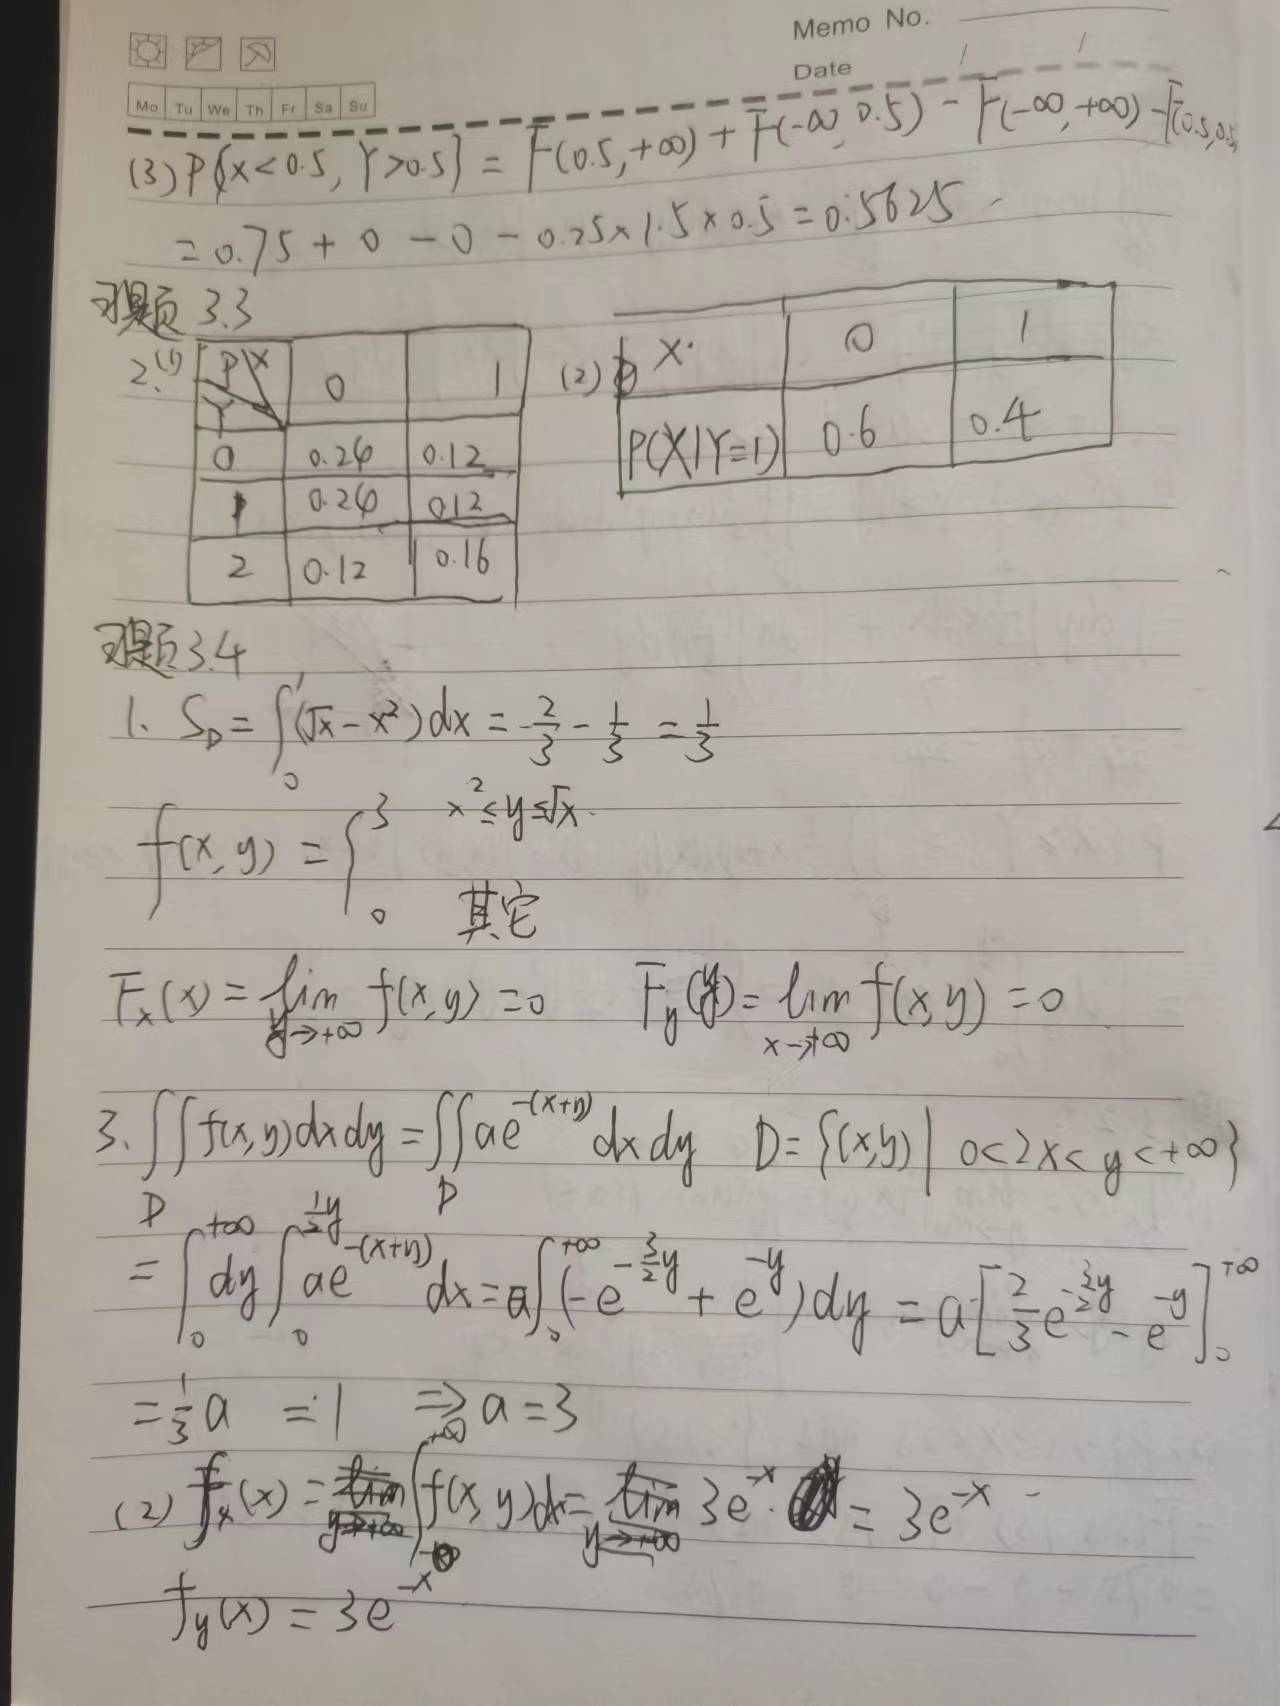 Memo No.
Date / /
Mo Tu We Th Fr Sa Su
(3) P{X<0.5, Y>0.5} = F(0.5,+∞) + F(-∞,0.5) - F(-∞,+∞) - F(0.5,0.5)
= 0.75 + 0 - 0 - 0.25×1.5×0.5 = 0.5625
习题 3.3
2.(1) P X Y 0 1
0 0.24 0.12
1 0.24 0.12
2 0.12 0.16
(2) X 0 1
P(X|Y=1) 0.6 0.4
习题3.4
1. S_D = ∫₀¹(√x - x²)dx = 2/3 - 1/3 = 1/3
f(x,y) = { 3 x²≤y≤√x
0 其它
F_x(x) = lim_{y→+∞} f(x,y) = 0 F_y(y) = lim_{x→+∞} f(x,y) = 0
3. ∬_D f(x,y)dxdy = ∬_D ae^{-(x+y)} dxdy D={(x,y)| 0<2x<y<+∞}
= ∫₀^{+∞} dy ∫₀^{½y} ae^{-(x+y)} dx = a∫₀^{+∞} (-e^{-3/2 y} + e^{-y})dy = a[2/3 e^{-3/2 y} - e^{-y}]₀^{+∞}
= 1/3 a = 1 ⇒ a = 3
(2) f_x(x) = ∫_{-∞}^{+∞} f(x,y)dx = 3e^{-x} = 3e^{-x}
f_y(x) = 3e^{-x}